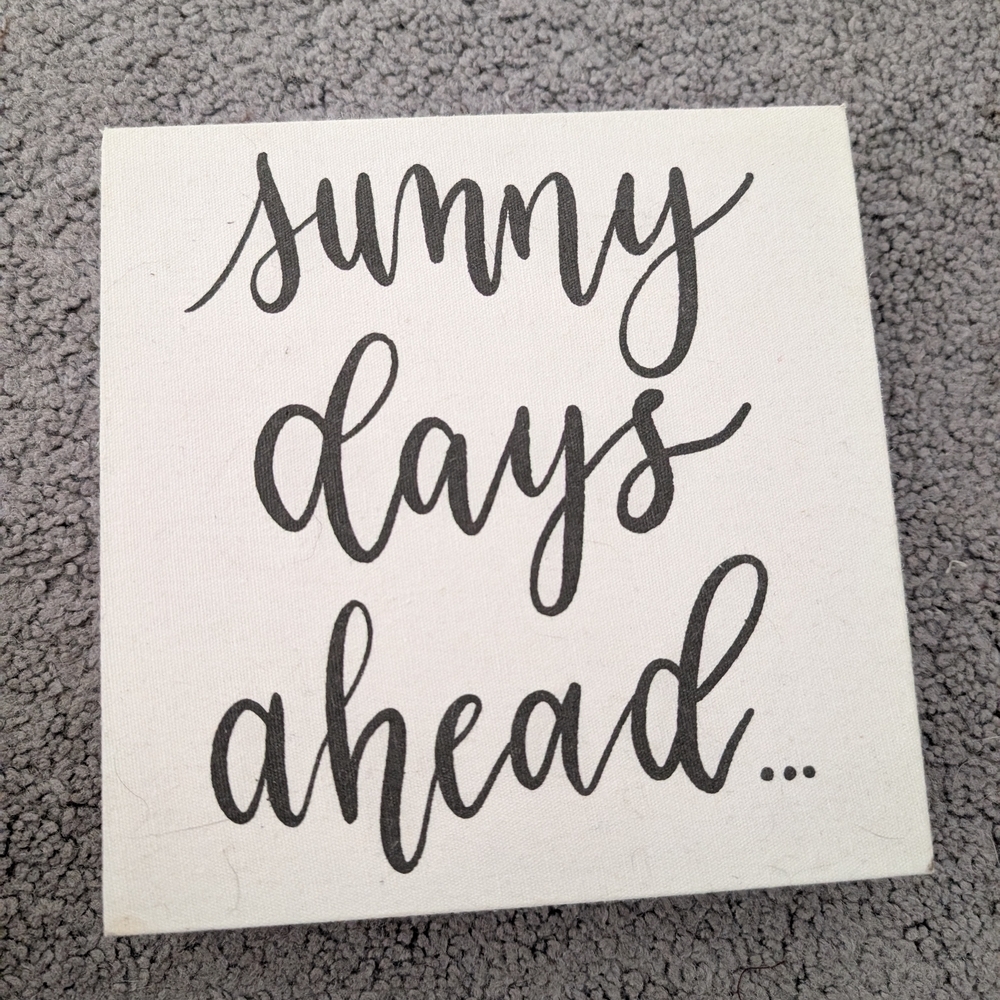 sunny
days
ahead...